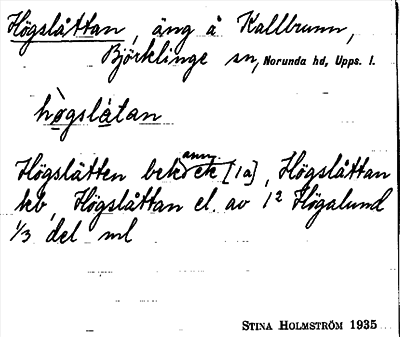 Högslåttan, äng å Kallbrunn,
Björklinge sn, Norunda hd, Upps. l.
hògslåtan
Högslåtten bek ann ek [1a], Högslåttan
kb, Högslåttan el. av 1² Högalund
1/3 del ml
STINA HOLMSTRÖM 1935